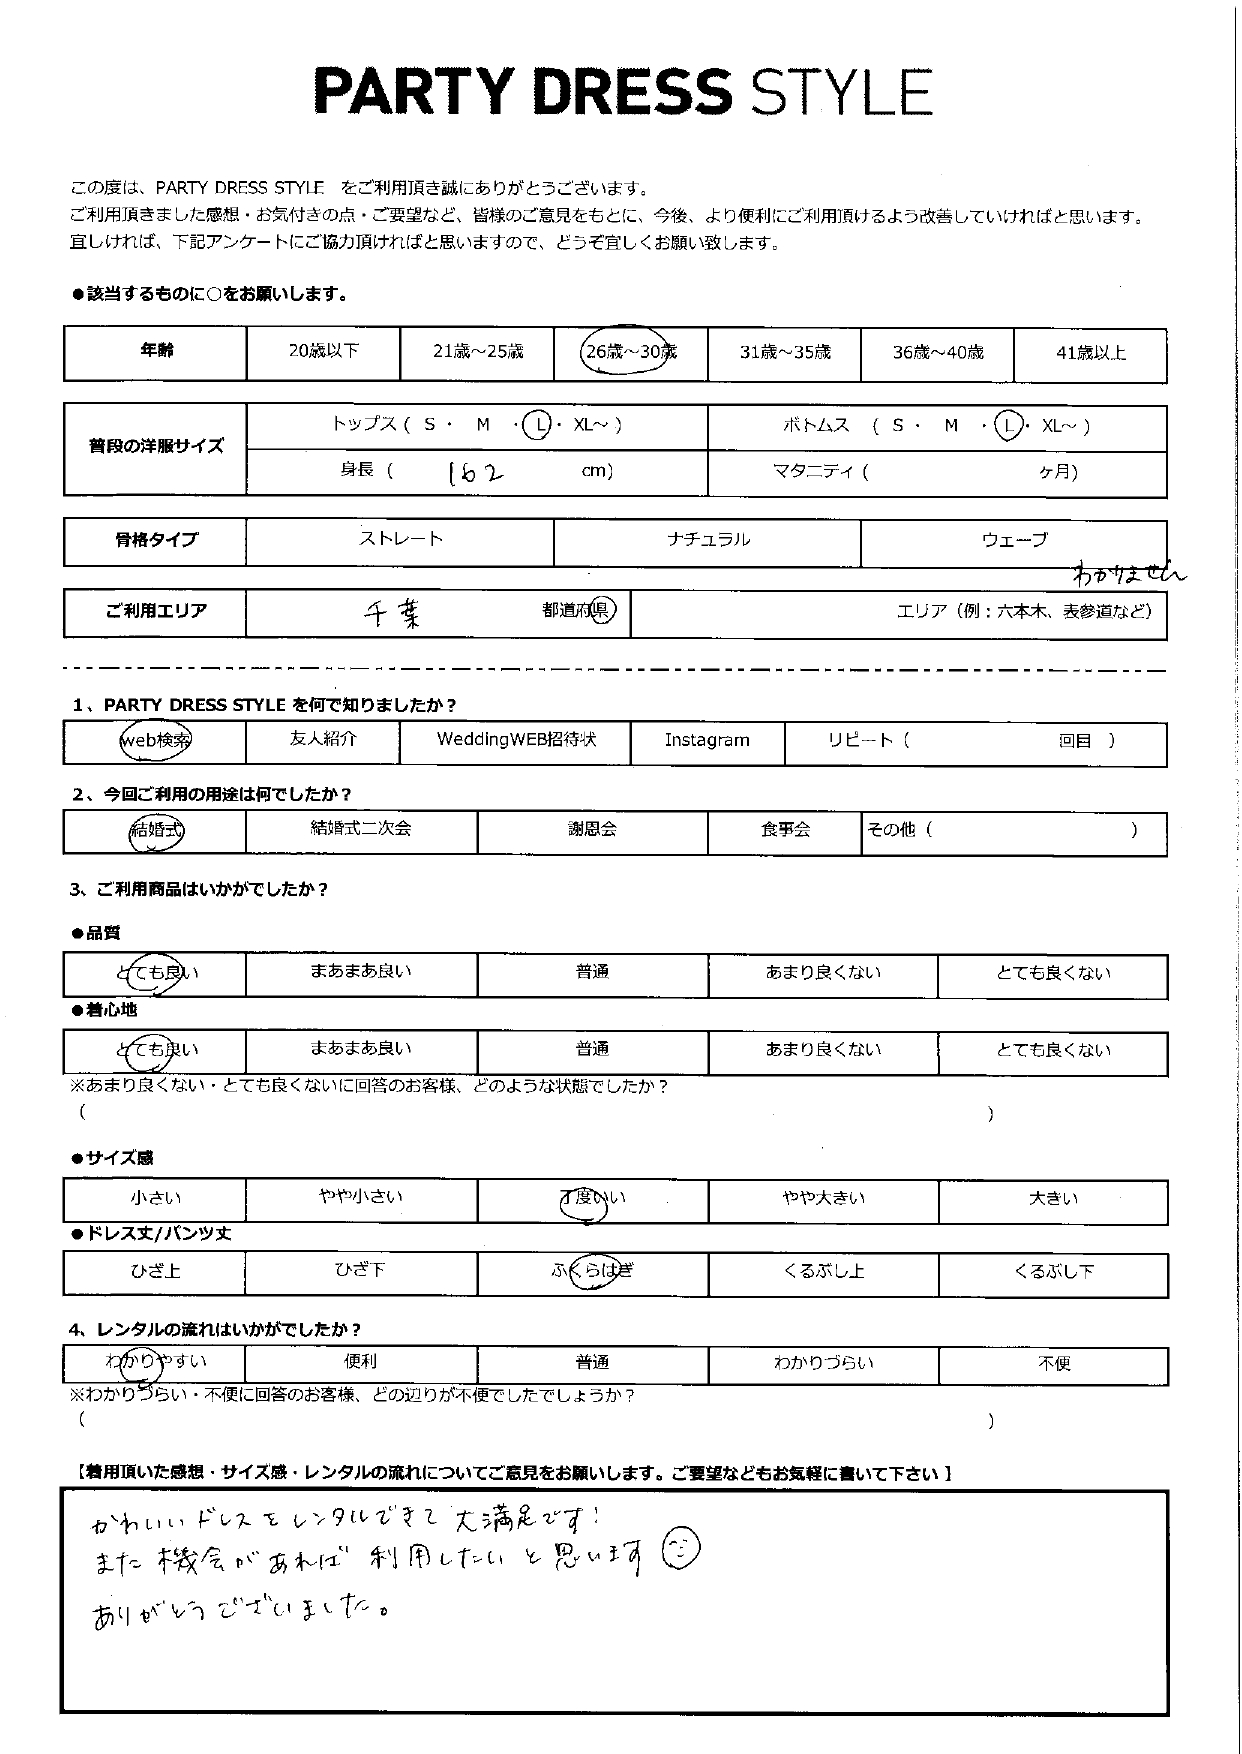 PARTY DRESS STYLE
この度は、PARTY DRESS STYLE をご利用頂き誠にありがとうございます。
ご利用頂きました感想・お気付きの点・ご要望など、皆様のご意見をもとに、今後、より便利にご利用頂けるよう改善していければと思います。
宜しければ、下記アンケートにご協力頂ければと思いますので、どうぞ宜しくお願い致します。
●該当するものに○をお願いします。
年齢 20歳以下 21歳～25歳 26歳～30歳 31歳～35歳 36歳～40歳 41歳以上
普段の洋服サイズ トップス ( S ・ M ・ L ・ XL～ ) ボトムス ( S ・ M ・ L ・ XL～ )
身長 ( 162 cm) マタニティ ( ヶ月)
骨格タイプ ストレート ナチュラル ウェーブ
わかりません
ご利用エリア 千葉 都道府県 エリア（例：六本木、表参道など）
1、PARTY DRESS STYLE を何で知りましたか？
web検索 友人紹介 WeddingWEB招待状 Instagram リピート ( 回目 )
2、今回ご利用の用途は何でしたか？
結婚式 結婚式二次会 謝恩会 食事会 その他 ( )
3、ご利用商品はいかがでしたか？
●品質
とても良い まあまあ良い 普通 あまり良くない とても良くない
●着心地
とても良い まあまあ良い 普通 あまり良くない とても良くない
※あまり良くない・とても良くないに回答のお客様、どのような状態でしたか？
( )
●サイズ感
小さい やや小さい 丁度いい やや大きい 大きい
●ドレス丈/パンツ丈
ひざ上 ひざ下 ふくらはぎ くるぶし上 くるぶし下
4、レンタルの流れはいかがでしたか？
わかりやすい 便利 普通 わかりづらい 不便
※わかりづらい・不便に回答のお客様、どの辺りが不便でしたでしょうか？
( )
【着用頂いた感想・サイズ感・レンタルの流れについてご意見をお願いします。ご要望などもお気軽に書いて下さい】
かわいいドレスをレンタルできて大満足です！
また機会があれば利用したいと思います
ありがとうございました。